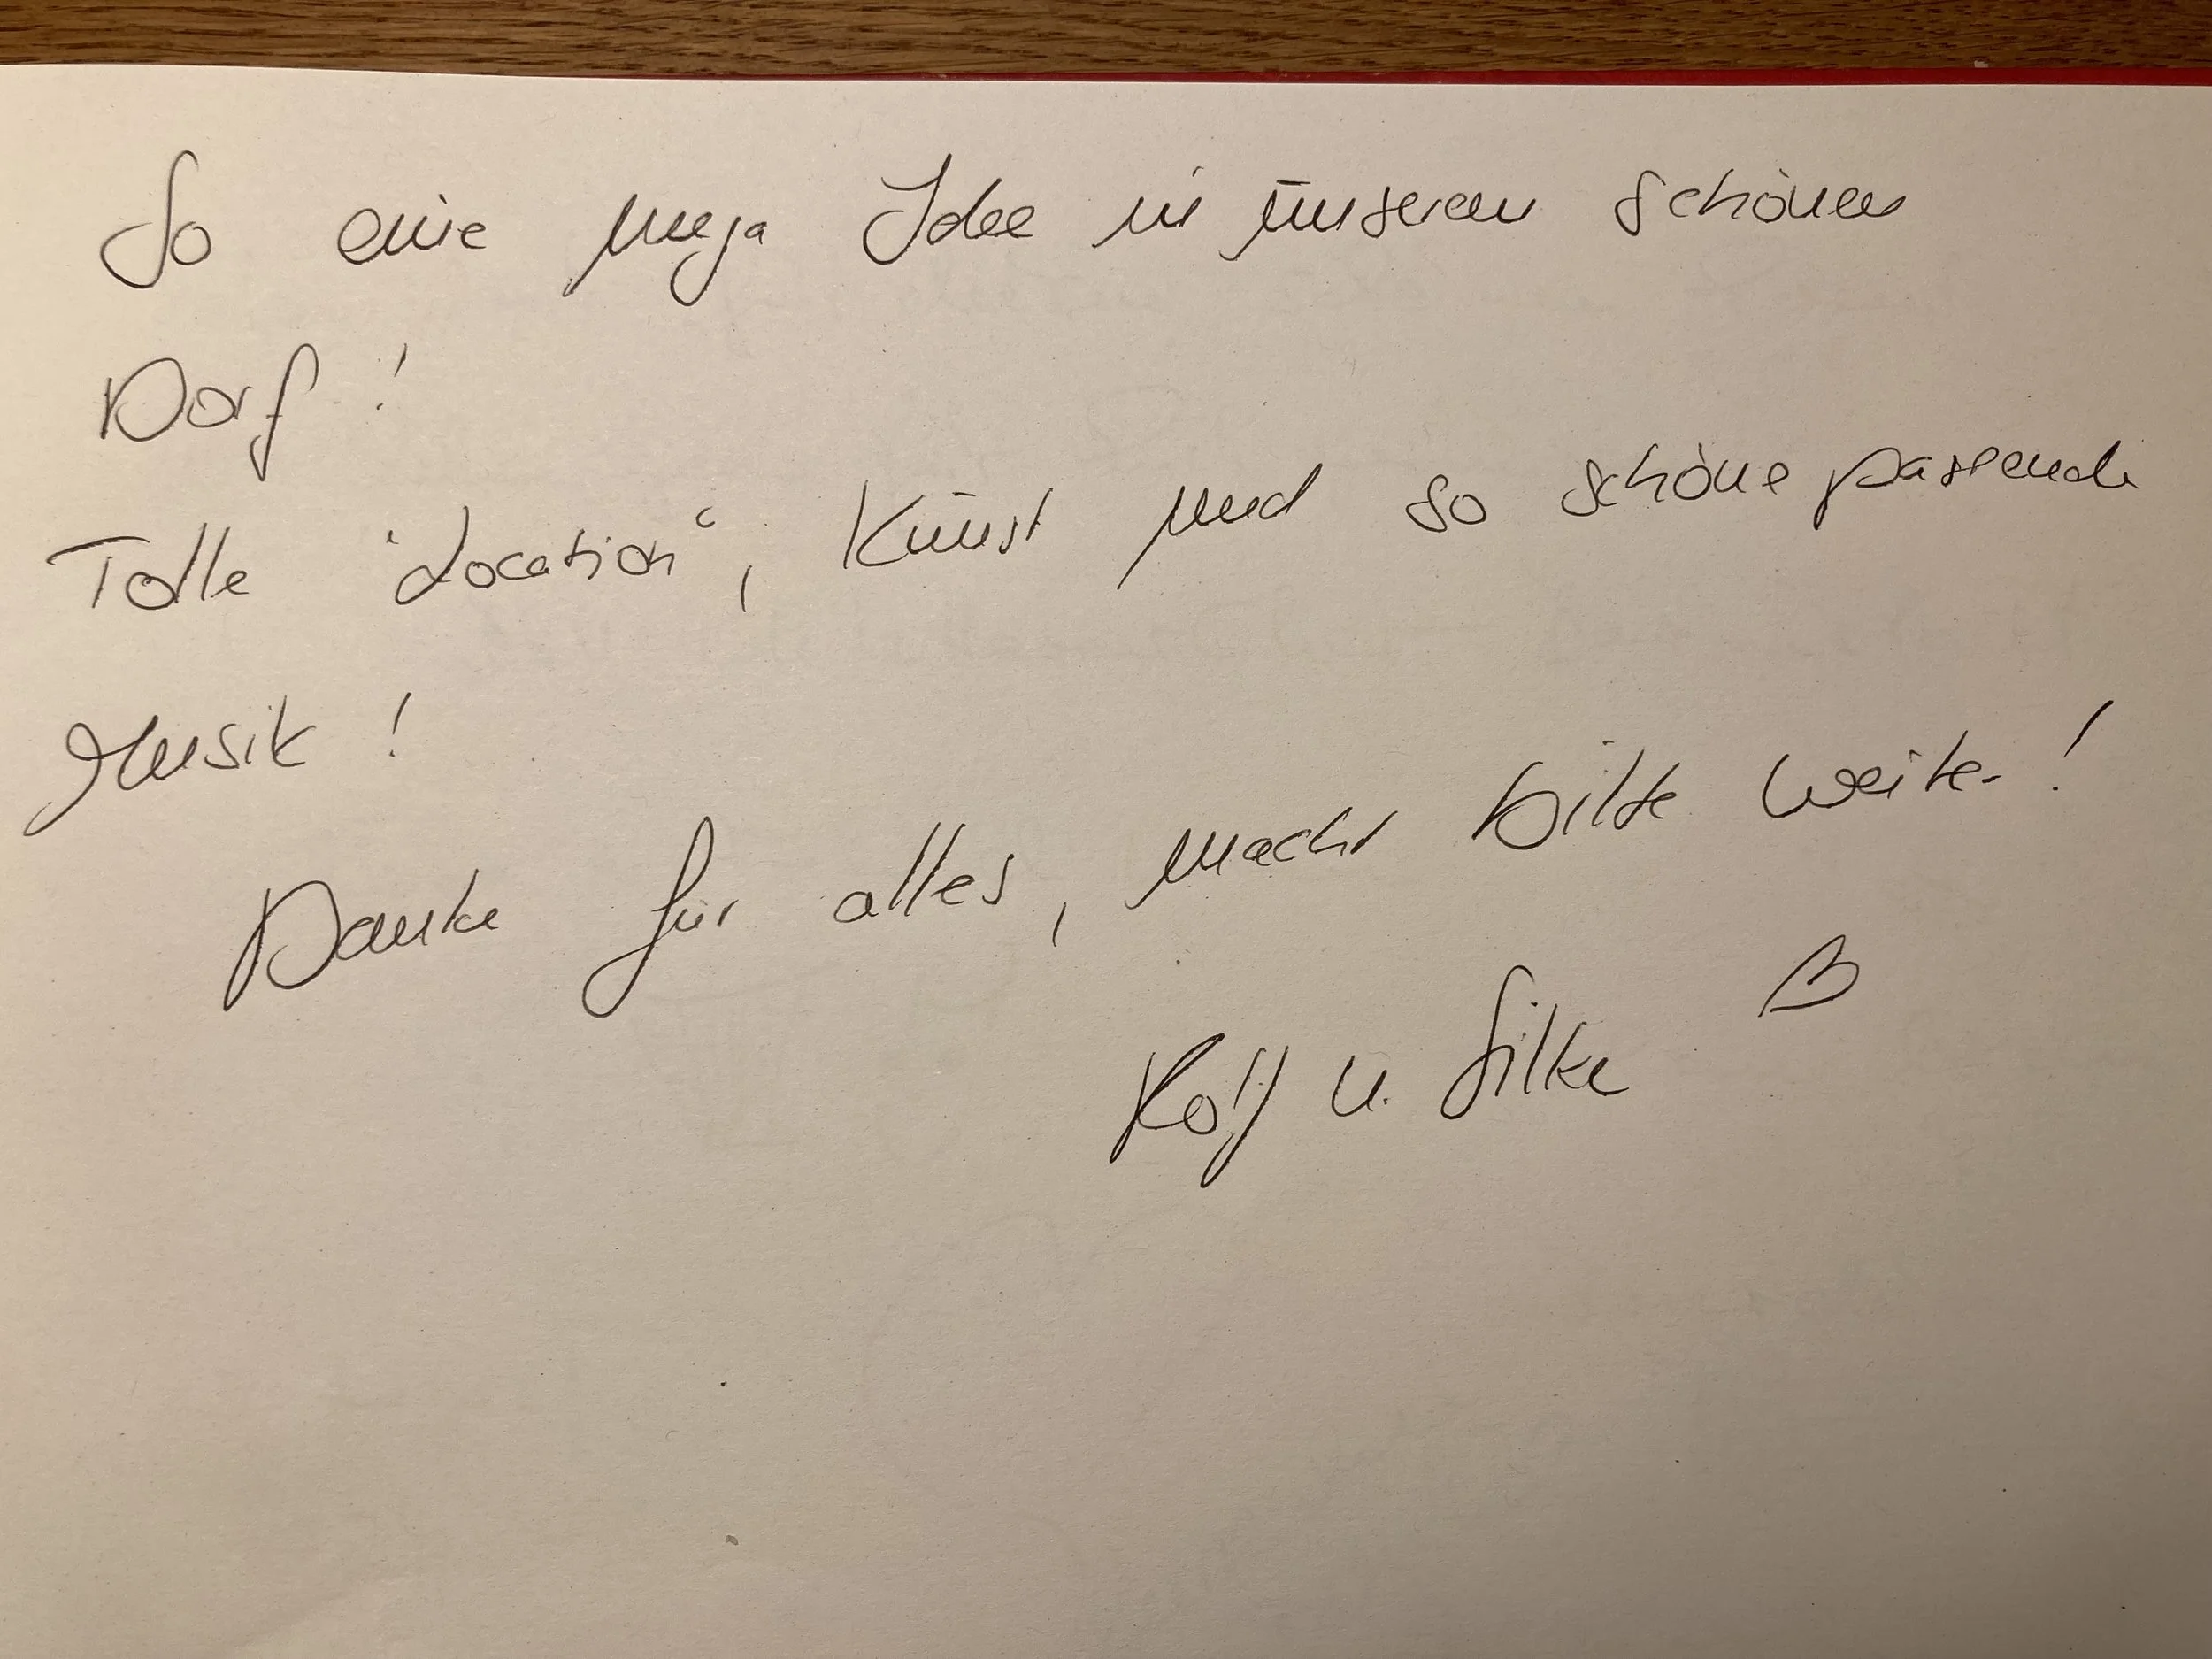 So eine mega Idee in unserem schönen
Dorf !
Tolle "Location", Kunst und so schöne passende
Musik !
Danke für alles, macht bitte weiter !
Rolf u. Silke ♡